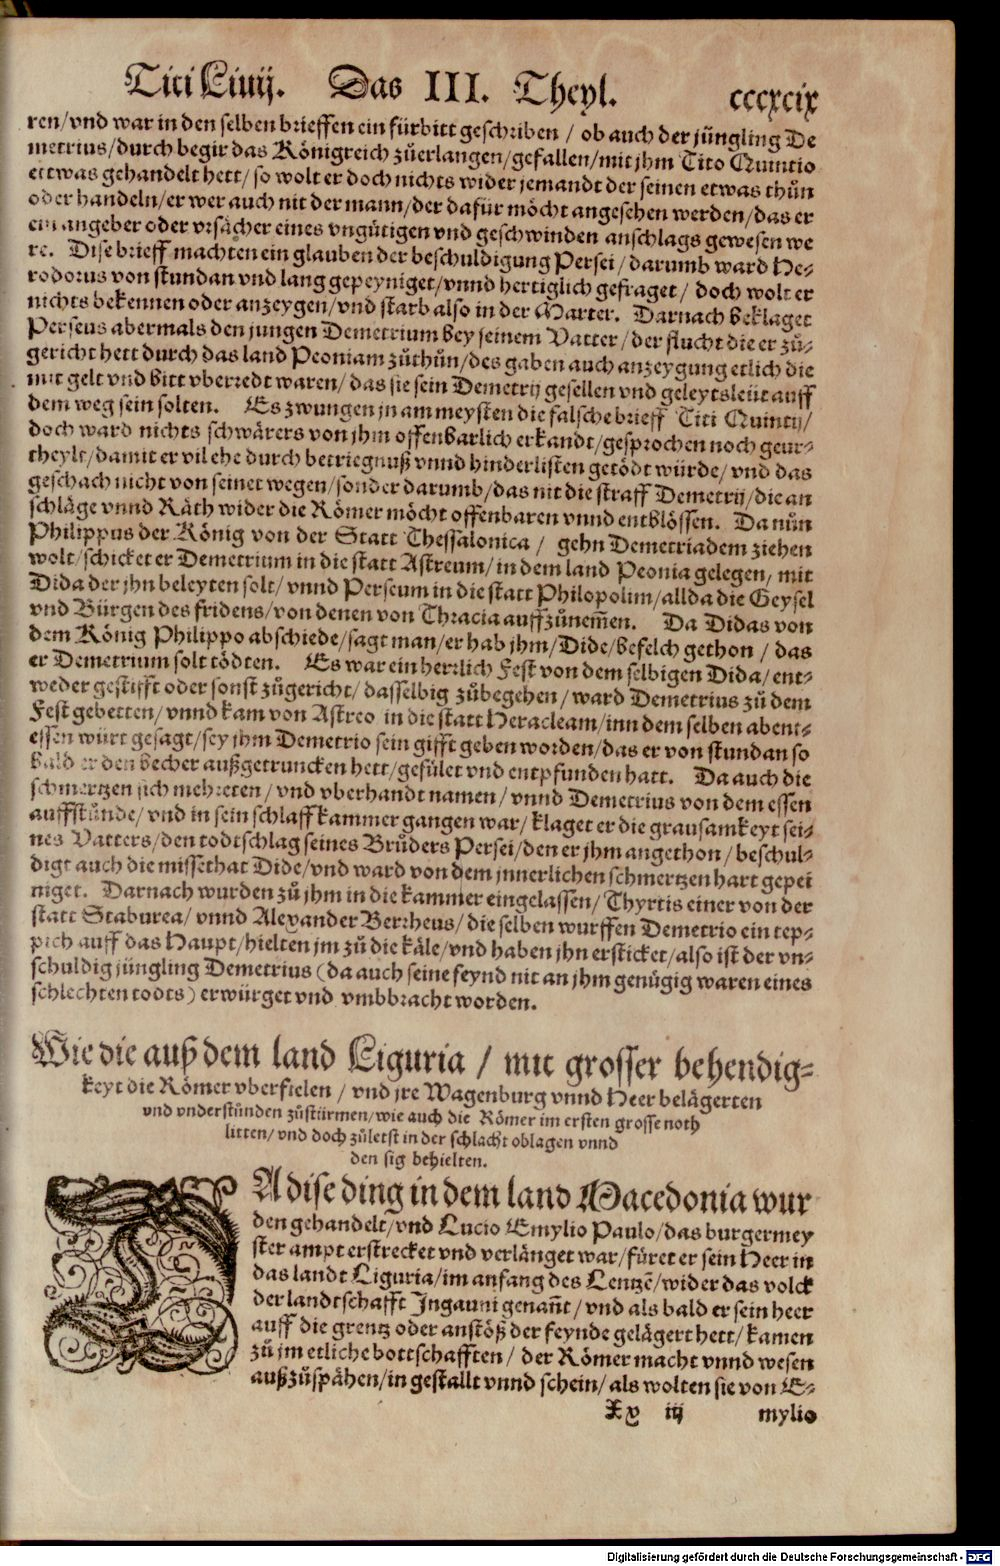 Titi Liuij. Das III. Theyl. cccxcix
ren/vnd war in den selben brieffen ein fürbitt geschriben / ob auch der jüngling De
metrius/durch begir das Königreich zůerlangen/gefallen/mit jhm Tito Quintio
ettwas gehandelt hett/ so wolt er doch nichts wider jemandt der seinen etwas thůn
oder handeln/er wer auch nit der mann/der dafür möcht angesehen werden/das er
ein angeber oder vrsächer eines vngütigen vnd geschwinden anschlags gewesen we
re. Dise brieff machten ein glauben der beschuldigung Persei/darumb ward He-
rodorus von stundan vnd lang gepeyniget/vnnd hertiglich gefraget/ doch wolt er
nichts bekennen oder anzeygen/vnd starb also in der Marter. Darnach beklaget
Perseus abermals den jungen Demetrium bey seinem Vatter/der flucht die er zů-
gericht hett durch das land Peoniam zůthůn/des gaben auch anzeygung etlich die
mit gelt vnd bitt vberredt waren/das sie sein Demetrij gesellen vnd geleytsleüt auff
dem weg sein solten. Es zwungen jn am meysten die falsche brieff Titi Quintij/
doch ward nichts schwärers von jhm offenbarlich erkandt/gesprochen noch geur-
theylt/damit er vil ehe durch betriegnuß vnnd hinderlisten getödt würde/vnd das
geschach nicht von seinet wegen/sonder darumb/das nit die straff Demetrij/die an
schläge vnnd Räth wider die Römer möcht offenbaren vnnd entblössen. Da nůn
Philippus der König von der Statt Thessalonica / gehn Demetriadem ziehen
wolt/schicket er Demetrium in die statt Astreum/in dem land Peonia gelegen, mit
Dida der jhn beleyten solt/vnnd Perseum in die statt Philopolim/allda die Geysel
vnd Bürgen des fridens/von denen von Thracia auffzůnem̃en. Da Didas von
dem König Philippo abschiede/sagt man/er hab jhm/Dide/befelch gethon / das
er Demetrium solt tödten. Es war ein herrlich Fest von dem selbigen Dida/ent-
weder gestifft oder sonst zůgericht/dasselbig zůbegehen/ward Demetrius zů dem
Fest gebetten/vnnd kam von Astreo in die statt Heracleam/inn dem selben abent-
essen würt gesagt/sey jhm Demetrio sein gifft geben worden/das er von stundan so
bald er den becher außgetruncken hett/gefület vnd entpfunden hatt. Da auch die
schmertzen sich mehreten/vnd vberhandt namen/vnnd Demetrius von dem essen
auffstůnde/vnd in sein schlaffkammer gangen war/klaget er die grausamkeyt sei-
nes Vatters/den todtschlag seines Brůders Persei/den er jhm angethon/beschul-
digt auch die missethat Dide/vnd ward von dem jnnerlichen schmertzen hart gepei
niget. Darnach wurden zů jhm in die kammer eingelassen/Thyrtis einer von der
statt Staburea/vnnd Alexander Berrheus/die selben wurffen Demetrio ein tep-
pich auff das Haupt/hielten jm zů die käle/vnd haben jhn ersticket/also ist der vn-
schuldig jüngling Demetrius (da auch seine feynd nit an jhm genügig waren eines
schlechten todts) erwürget vnd vmbbracht worden.
Wie die auß dem land Liguria / mit grosser behendig-
keyt die Römer vberfielen / vnd jre Wagenburg vnnd Heer belägerten
vnd vnderstünden zůstürmen/wie auch die Römer im ersten grosse noth
litten/vnd doch zůletst in der schlacht oblagen vnnd
den sig behielten.
DA dise ding in dem land Macedonia wur
den gehandelt/vnd Lucio Emylio Paulo/das burgermey
ster ampt erstrecket vnd verlänget war/füret er sein Heer in
das landt Liguria/im anfang des Lentzē/wider das volck
der landtschafft Ingauni genañt/vnd als bald er sein heer
auff die grentz oder anstöß der feynde gelägert hett/kamen
zů jm etliche bottschafften/der Römer macht vnnd wesen
außzůspähen/in gestallt vnnd schein/als wolten sie von E-
Xx iij mylio
Digitalisierung gefördert durch die Deutsche Forschungsgemeinschaft - DFG